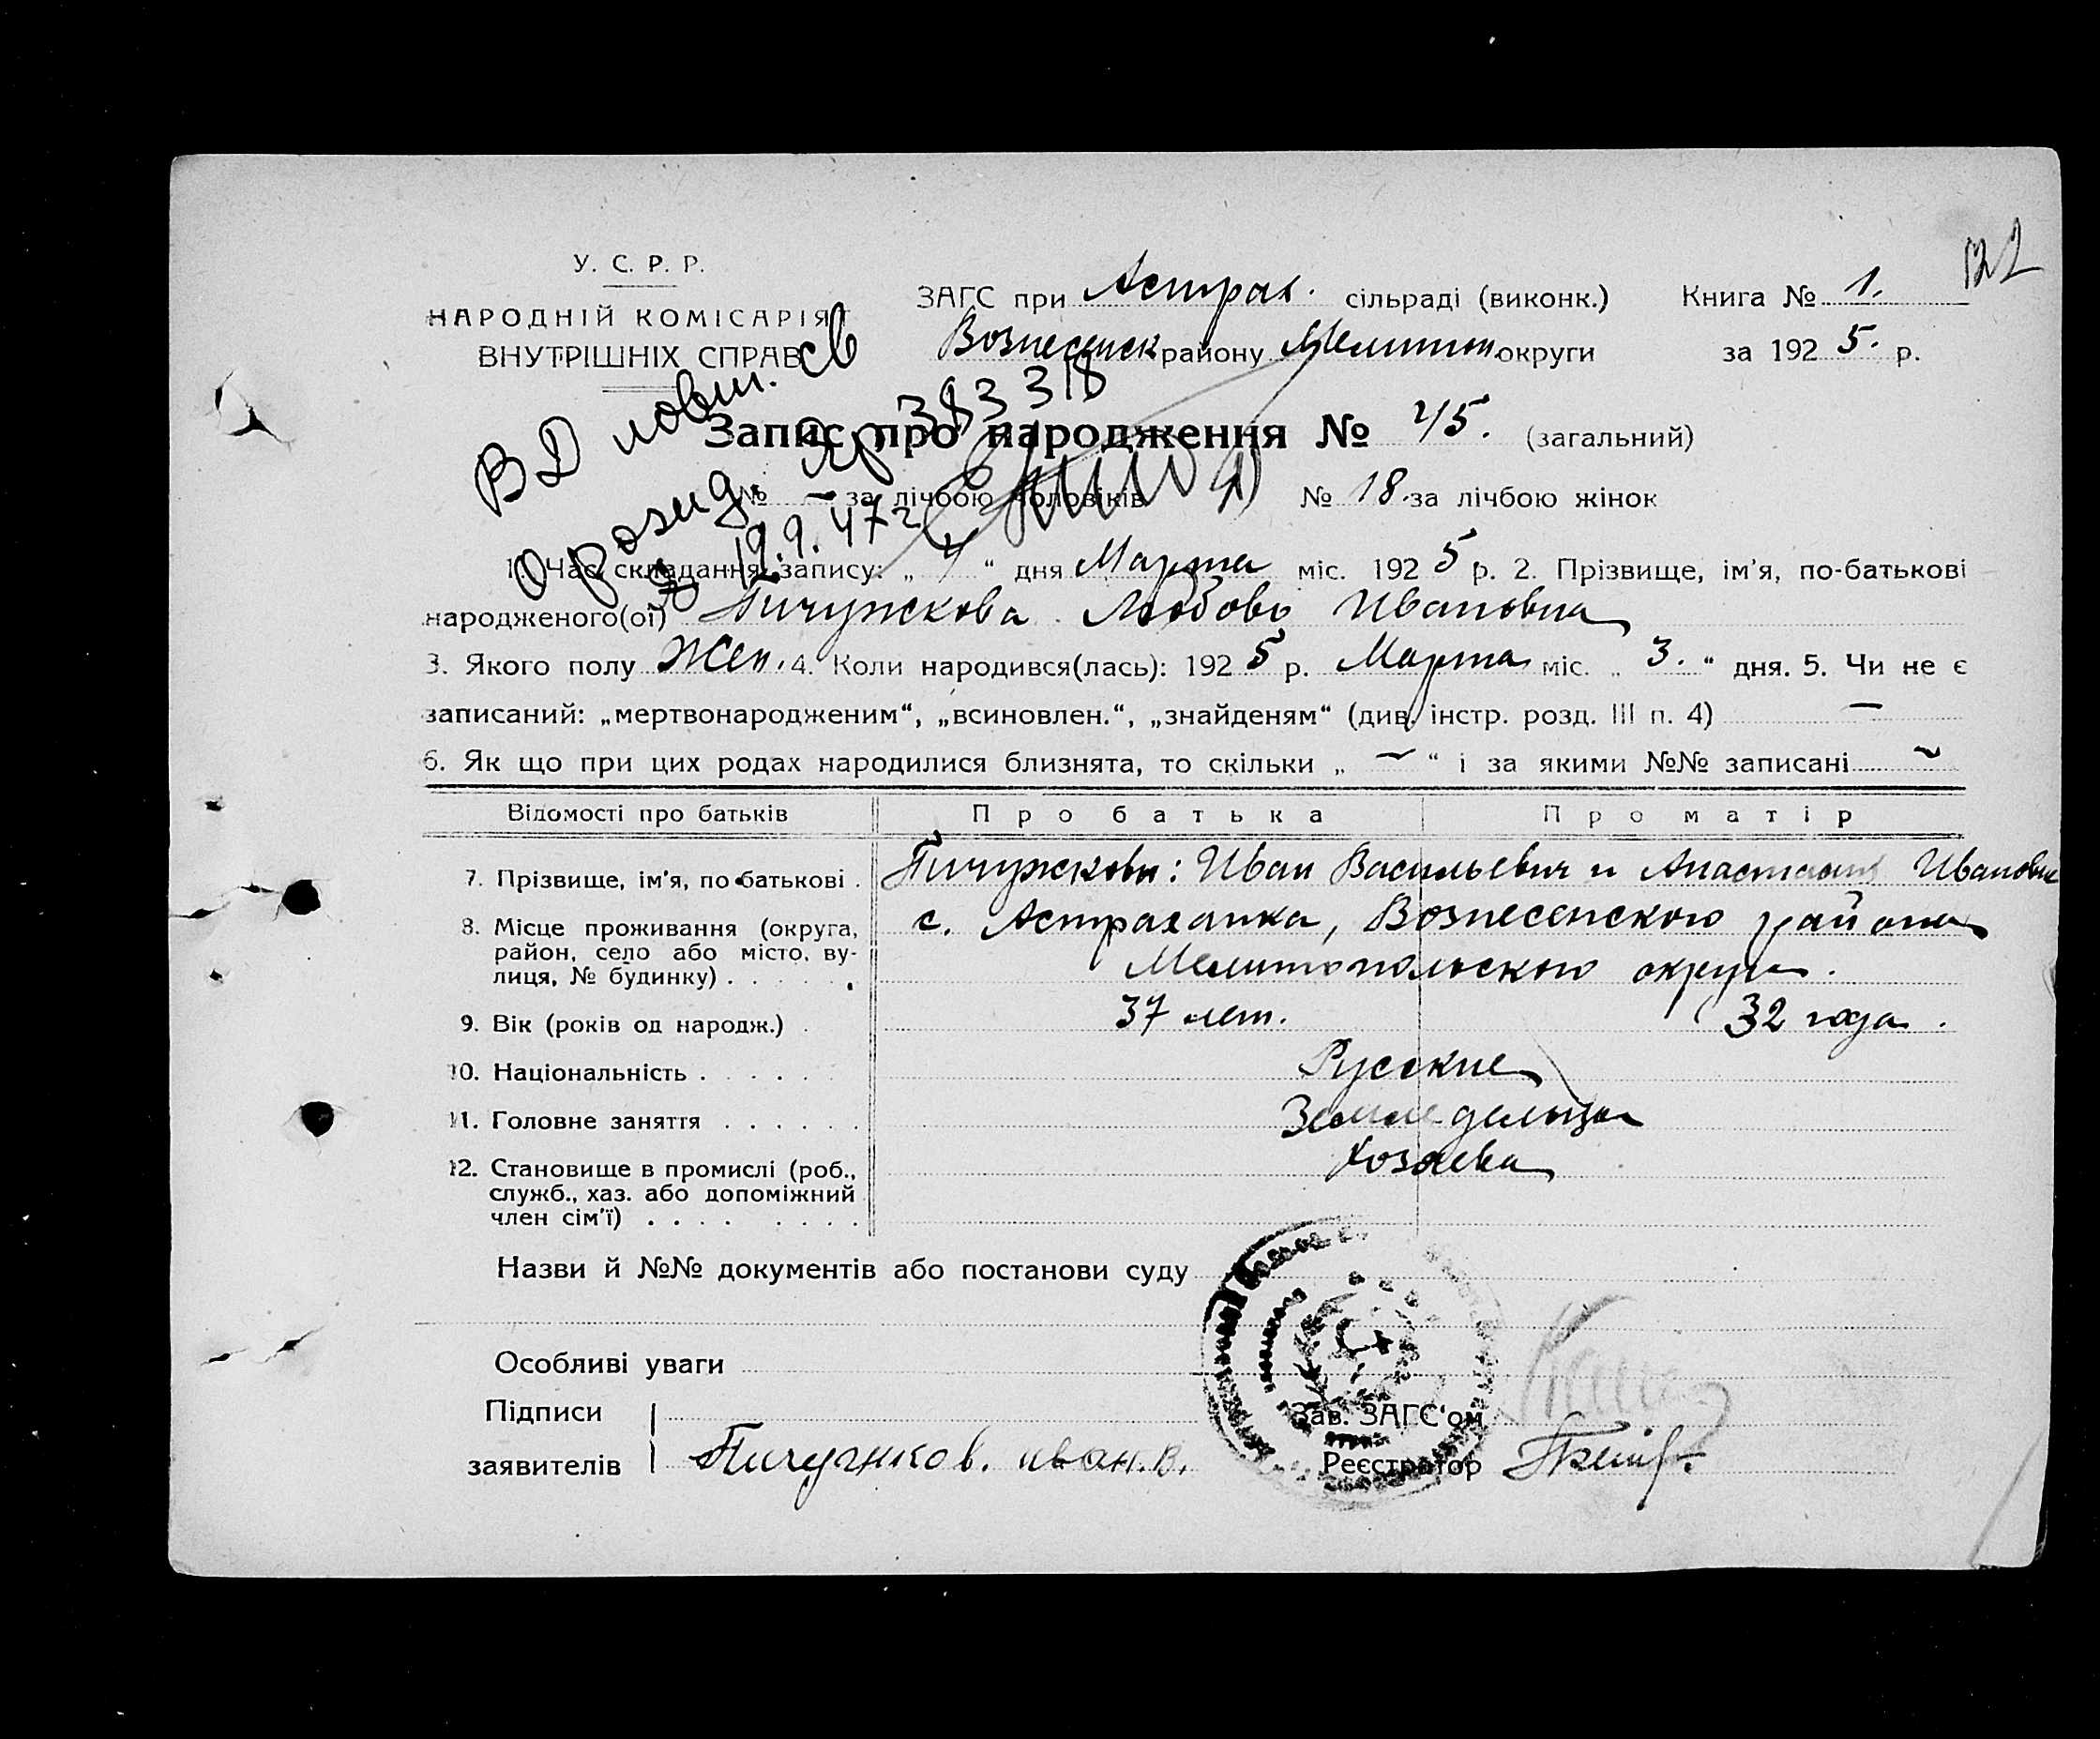 У. С. Р. Р.
НАРОДНІЙ КОМІСАРІЯТ
ВНУТРІШНІХ СПРАВ
ЗАГС при Астрах. сільраді (виконк.)
Книга № 1.
Вознесенск району Мелитоп округи
за 1925. р.
ВД повт. св
о рожд. 383318
19.9.47 г
Запис про народження № 45. (загальний)
№ — за лічбою чоловіків № 18. за лічбою жінок
1. Час складання запису: „ 4 “ дня Марта міс. 1925 р. 2. Прізвище, ім'я, по-батькові
народженого(ої) Пичужкова Любовь Ивановна
3. Якого полу Жен. 4. Коли народився(лась): 1925 р. Марта міс. „ 3. “ дня. 5. Чи не є
записаний: „мертвонародженим“, „всиновлен.“, „знайденям“ (див. інстр. розд. III п. 4) —
6. Як що при цих родах народилися близнята, то скільки „ — “ і за якими №№ записані —
Відомості про батьків Про батька Про матір
7. Прізвище, ім'я, по-батькові . Пичужковы: Иван Васильевич и Анастасия Ивановна
8. Місце проживання (округа, район, село або місто, вулиця, № будинку) . . . . . . с. Астраханка, Вознесенского района
Мелитопольского округа.
9. Вік (років од народж.) . 37 лет. 32 года.
10. Національність . . . . . . Русские
11. Головне заняття . . . . . . Земледельцы
12. Становище в промислі (роб., служб., хаз. або допоміжний член сім'ї) . . . . . . . . Хозяева
Назви й №№ документів або постанови суду
Особливі уваги
Підписи
заявителів Пичужков. иван. в.
Зав. ЗАГС'ом
Реєстратор